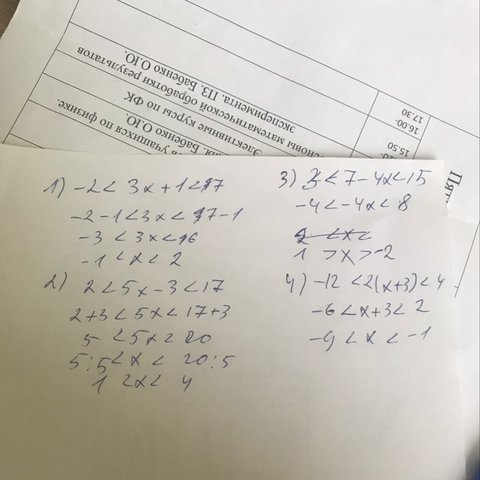 1) -2 < 3x + 1 < 17
-2 - 1 < 3x < 17 - 1
-3 < 3x < 16
-1 < x < 2
2) 2 < 5x - 3 < 17
2+3 < 5x < 17+3
5 < 5x < 20
5:5 < x < 20:5
1 < x < 4
3) 3 < 7 - 4x < 15
-4 < -4x < 8
1 > x > -2
4) -12 < 2(x+3) < 4
-6 < x+3 < 2
-9 < x < -1
учащихся по физике.
Бабенко О.Ю.
Элективные курсы по ФК
математической обработки результатов
эксперимента. ПЗ. Бабенко О.Ю.
15.50
16.00-
17.30